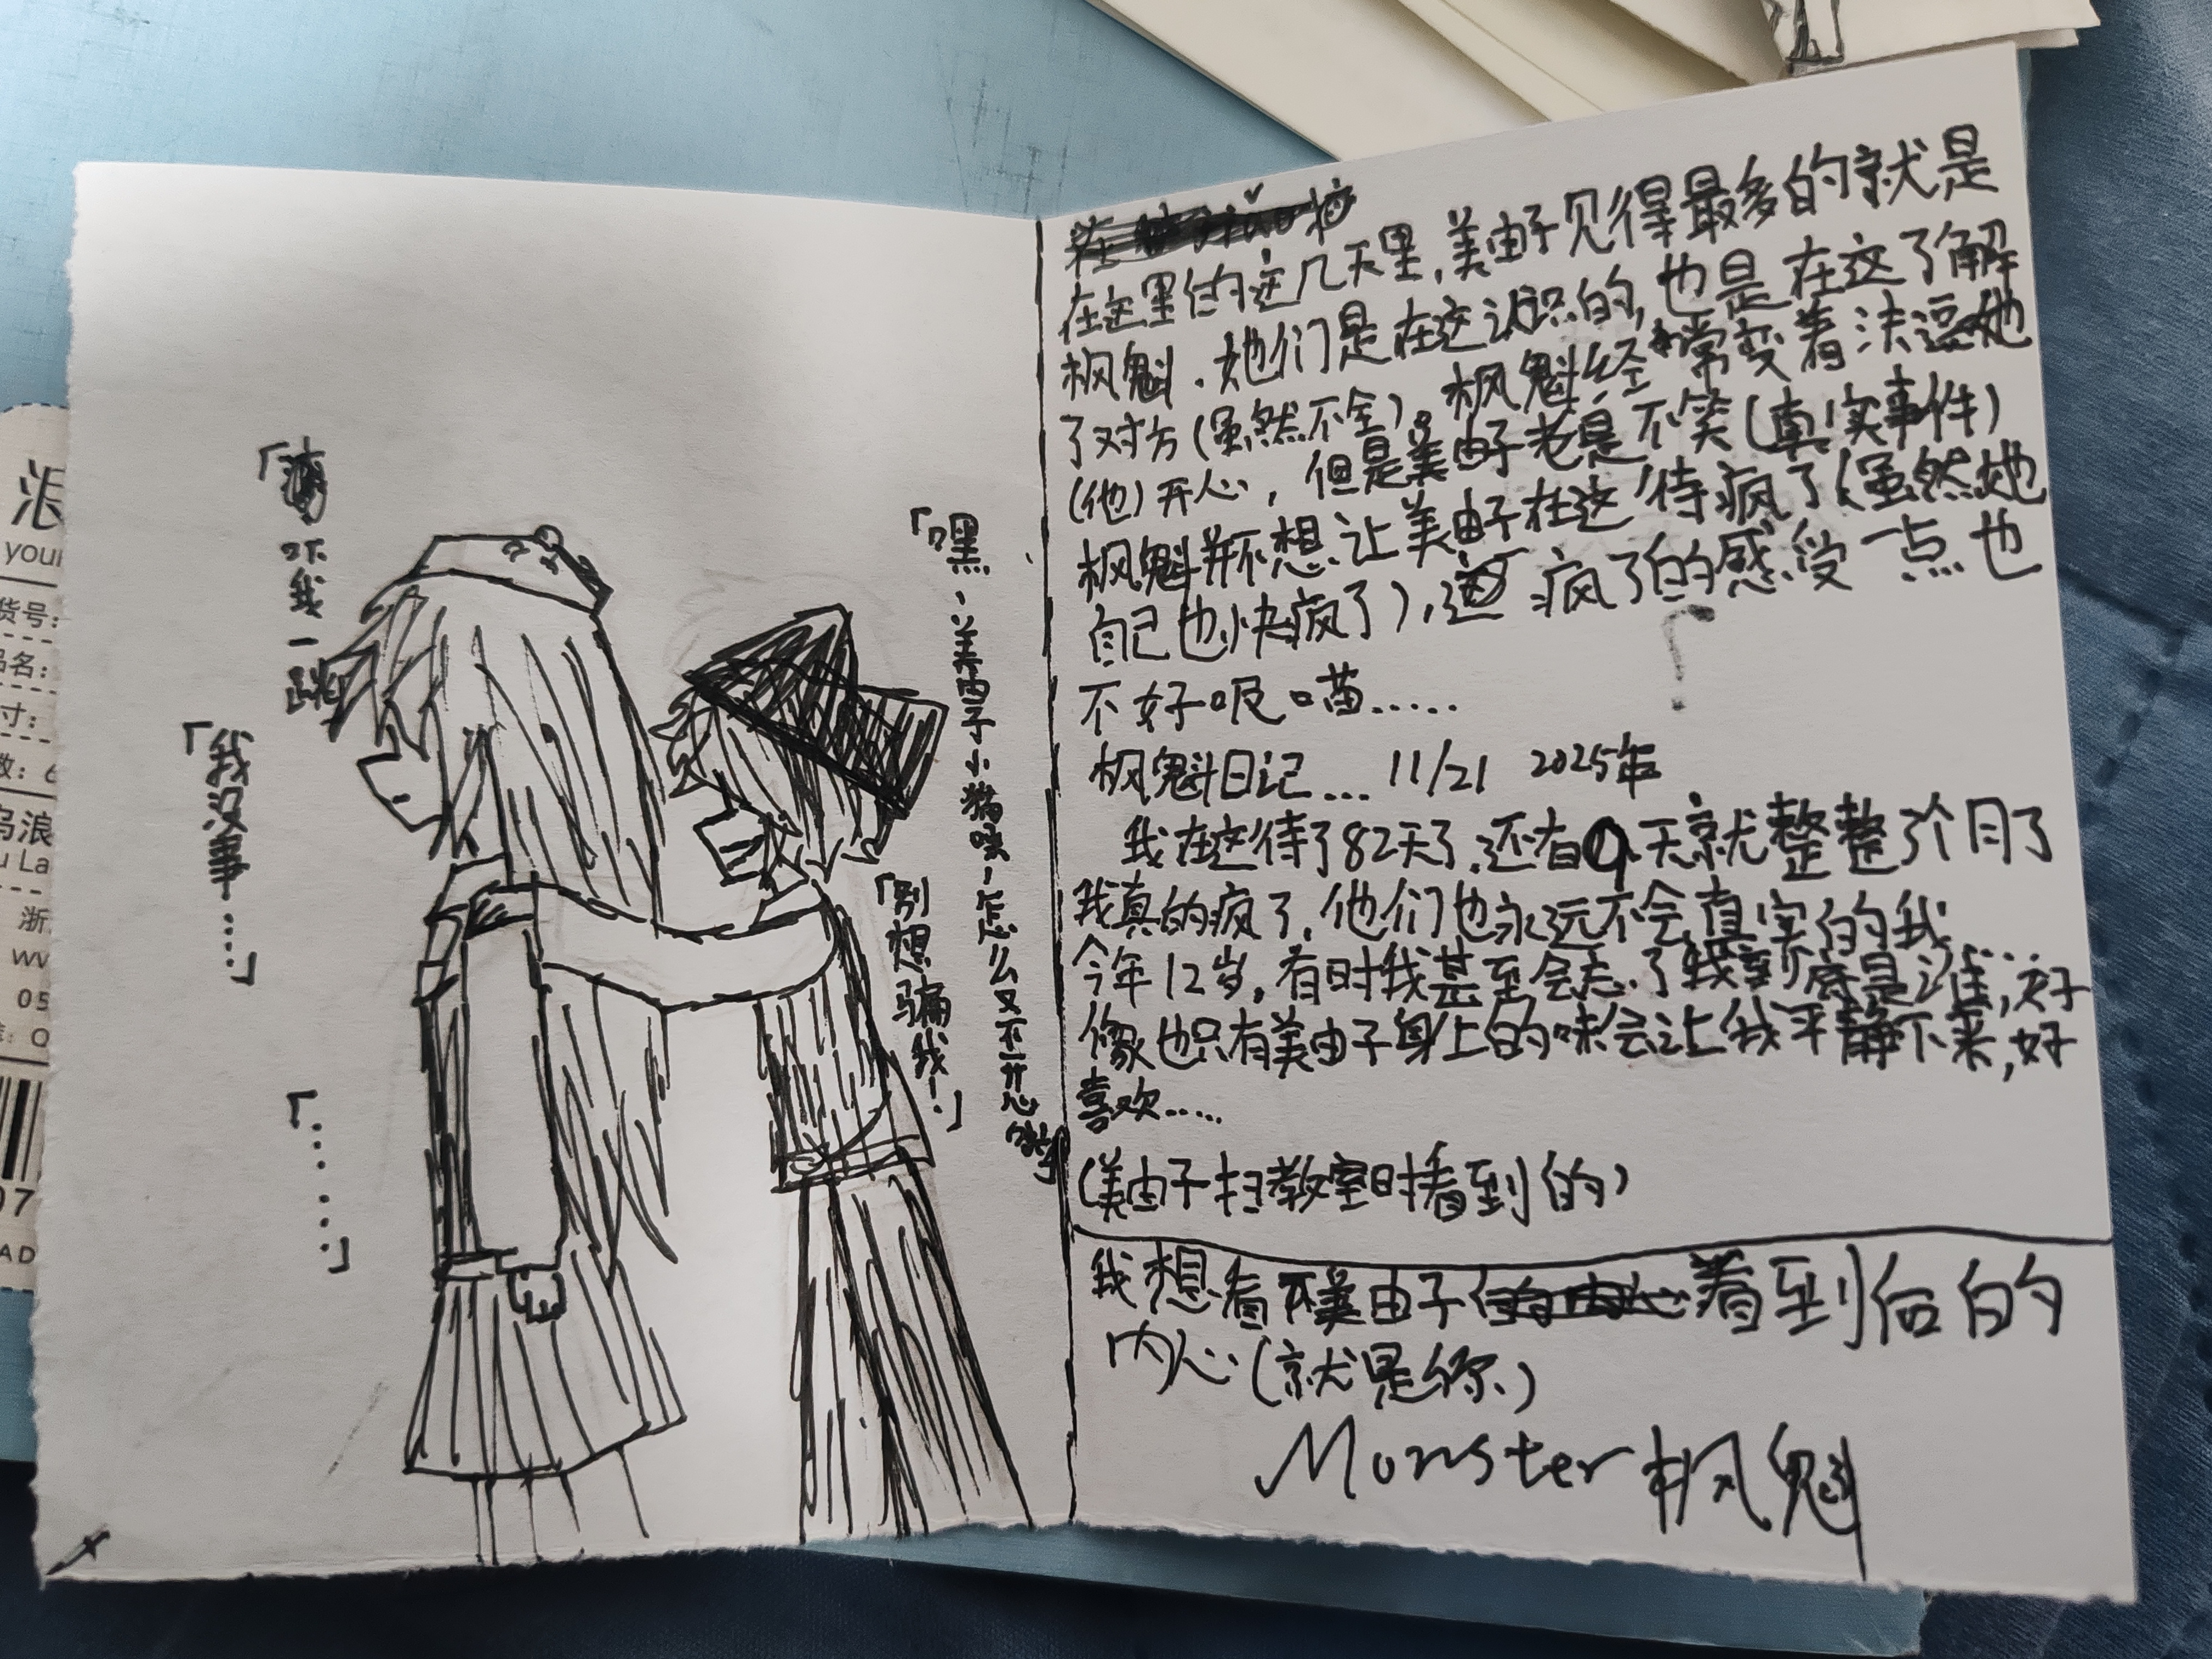 「嘿、美由子小猪咪，怎么又不开心
「别想骗我！」
吓我一跳
「我没事……」
「……」
在
在这里住的这几天里，美由子见得最多的就是
枫魁．她们是在这认识的，也是在这了解
了对方（虽然不全）。枫魁经常变着法逗她
（他）开心，但是美由子老是不笑（真实事件）
枫魁并不想让美由子在这待疯了（虽然她
自己也快疯了），这疯了的感受一点也
不好呢喵……
枫魁日记… 11/21 2025年
我在这待了82天了，还有9天就整整了个月了
我真的疯了，他们也永远不会真实的我……
今年12岁，有时我甚至会忘了我到底是谁，好
像也只有美由子身上的味会让我平静下来，好
喜欢……
（美由子扫教室时看到的）
我想看下美由子看到后的
内心（就是你）
Monster枫魁
浪
your
货号：
品名：
寸：
数：6
乌浪
u La
浙
ww
05
07
AD